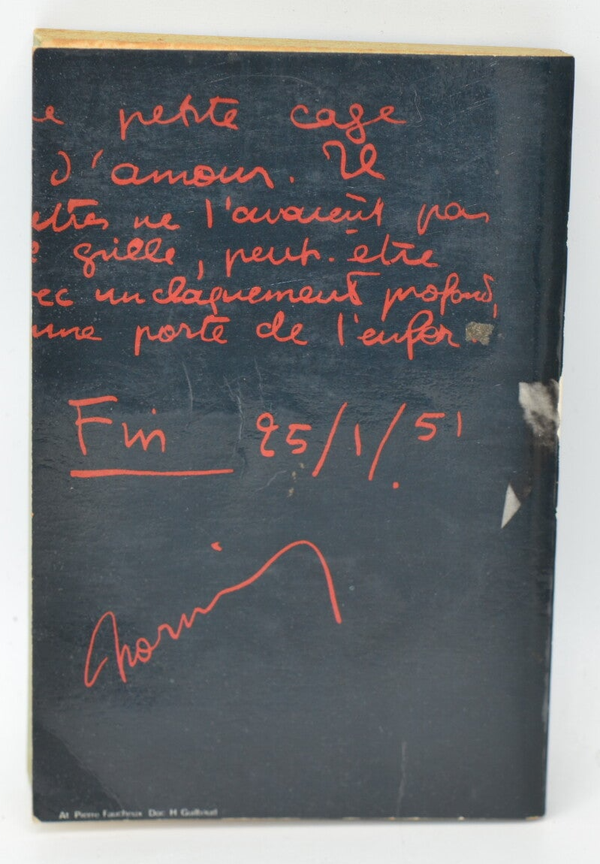 e petite cage
d'amour. Il
ettres ne l'avaient pas
grille, peut-être
ec un claquement profond,
une porte de l'enfer
Fin 25/1/51
At Pierre Faucheux Doc H Guilbaud